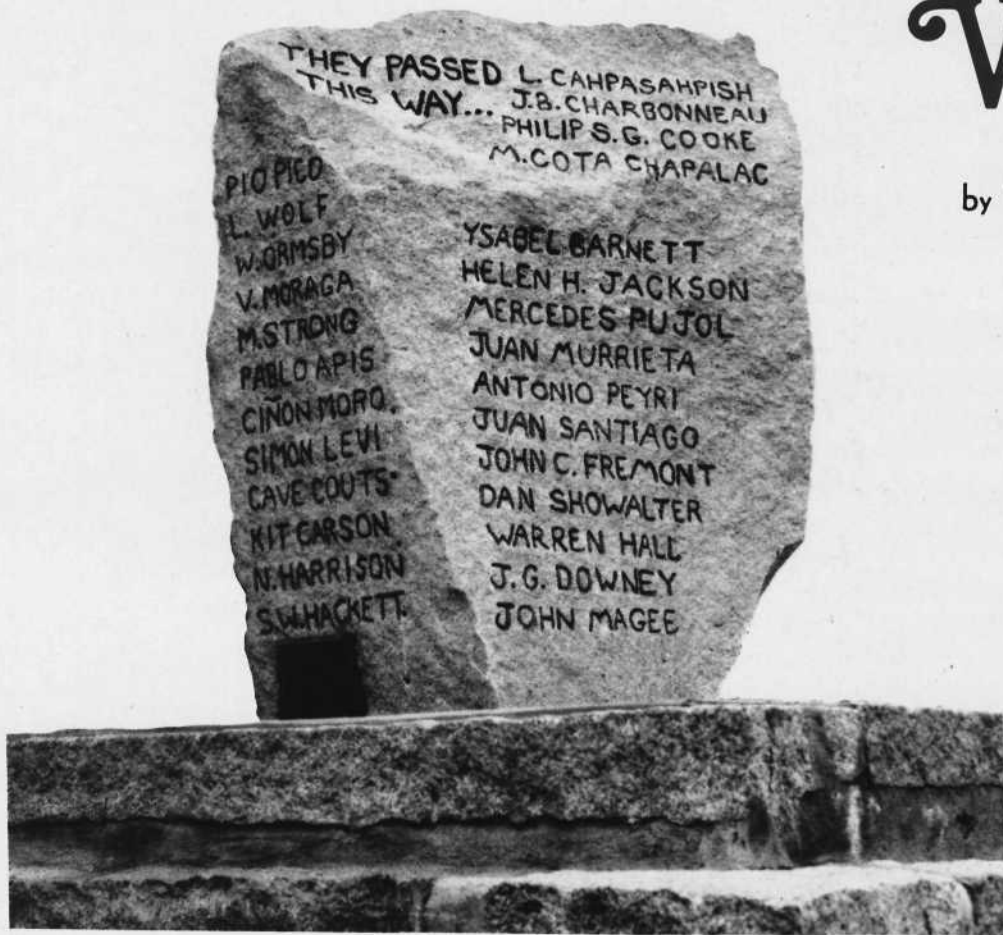 V
by
THEY PASSED
THIS WAY...
L. CAHPASAHPISH
J.B. CHARBONNEAU
PHILIP S.G. COOKE
M. COTA CHAPALAC
PIO PICO
L. WOLF
W. ORMSBY
V. MORAGA
M. STRONG
PABLO APIS
CIÑON MORO.
SIMON LEVI
CAVE COUTS
KIT CARSON
N. HARRISON
S.W. HACKETT.
YSABEL BARNETT
HELEN H. JACKSON
MERCEDES PUJOL
JUAN MURRIETA
ANTONIO PEYRI
JUAN SANTIAGO
JOHN C. FREMONT
DAN SHOWALTER
WARREN HALL
J.G. DOWNEY
JOHN MAGEE